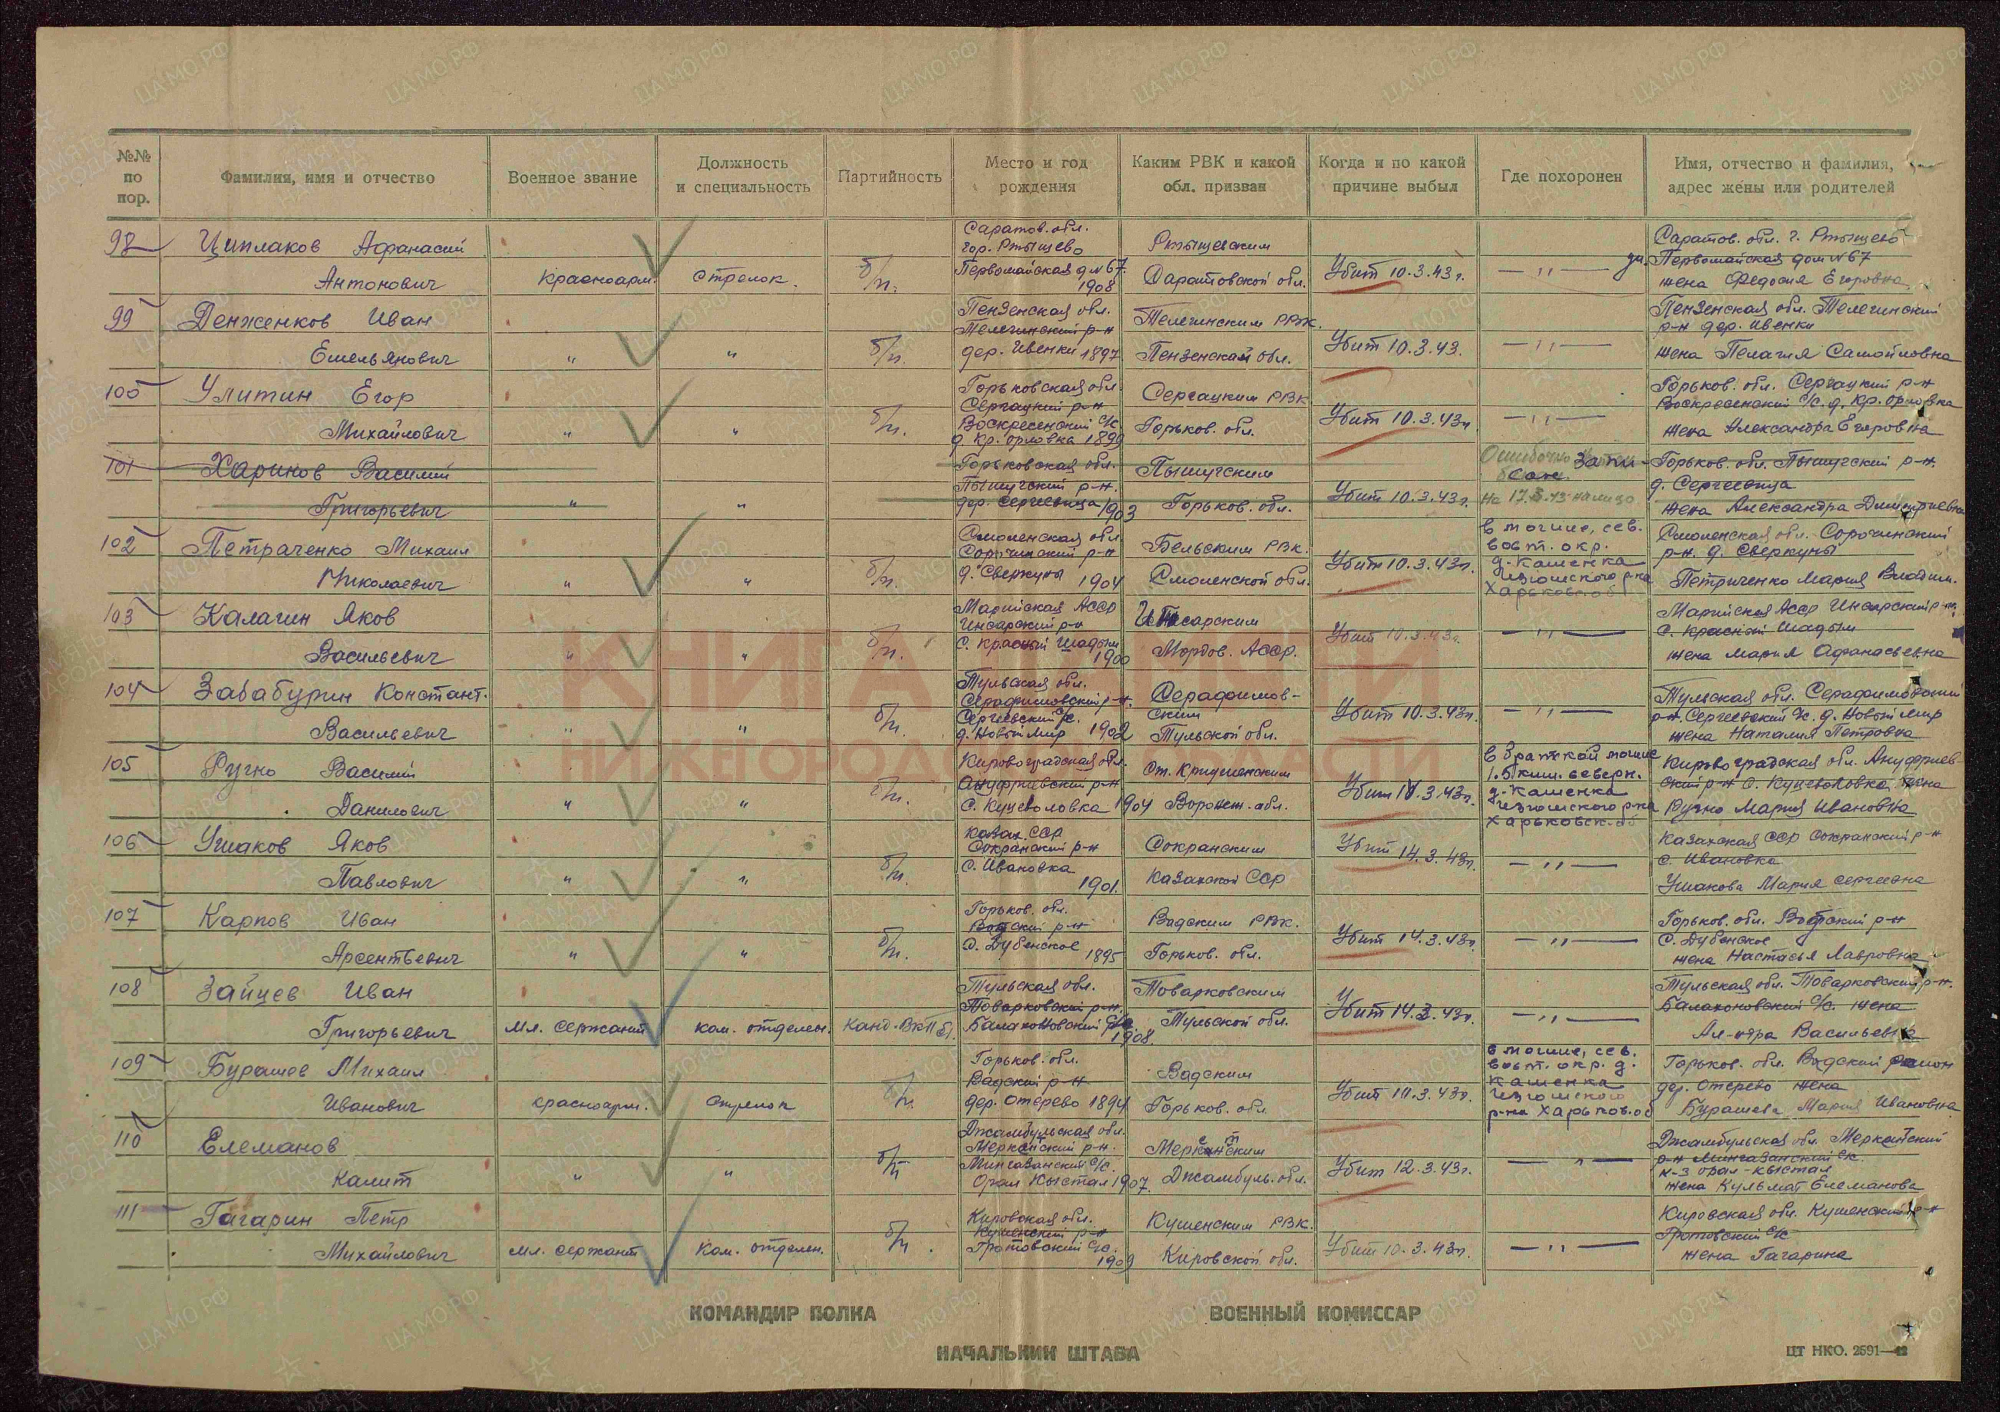 №№ по пор.
Фамилия, имя и отчество
Военное звание
Должность и специальность
Партийность
Место и год рождения
Каким РВК и какой обл. призван
Когда и по какой причине выбыл
Где похоронен
Имя, отчество и фамилия, адрес жены или родителей
98 Циплаков Афанасий Антонович
Красноарм. Стрелок. б/п.
Саратов. обл.
гор. Ртищево
Первомайская д №67
1908
Ртищевским
Саратовской обл.
Убит 10.3.43г.
— " —
Саратов. обл. г. Ртищево
ул. Первомайская дом №67
жена Федосия Егоровна
99 Денженков Иван Емельянович
" " б/п.
Пензенская обл.
Телегинский р-н
дер. Ивенки 1897
Телегинским РВК.
Пензенской обл.
Убит 10.3.43.
— " —
Пензенская обл. Телегинский
р-н дер. Ивенки
жена Пелагия Самойловна
100 Улитин Егор Михайлович
" " б/п.
Горьковская обл.
Сергацкий р-н
Воскресенский с/с
д. Кр. орловка 1899
Сергацким РВК
Горьков. обл.
Убит 10.3.43г.
— " —
Горьков. обл. Сергацкий р-н
Воскресенский с/с. д. Кр. орловка
жена Александра Егоровна
101 Харинов Василий Григорьевич
" "
Горьковская обл.
Пыщугский р-н.
дер. Сергеевица 1903
Пыщугским
Горьков. обл.
Убит 10.3.43г.
Ошибочно запи-
сан
на 17.3.43 налицо
Горьков. обл. Пыщугский р-н.
д. Сергеевица
жена Александра Дмитриевна
102 Петраченко Михаил Николаевич
" " б/п.
Смоленская обл.
Сорочинский р-н
д. Сверкуны 1904
Бельским РВК.
Смоленской обл.
Убит 10.3.43г.
в могиле, сев.
вост. окр.
д. Кашенка
Чезюшского р-на
Харьковс. об
Смоленская обл. Сорочинский
р-н. д. Сверкуны
Петриченко Мария Владим.
103 Калагин Яков Васильевич
" " б/п.
Марийская АССР
Инсарский р-н
с. Красный Шадым
1900
Инсарским
Мордов. АССР.
Убит 10.3.43г.
— " —
Марийская АССР Инсарский р-н.
с. Красный Шадым
жена Мария Афанасьевна
104 Забабурин Констант. Васильевич
" " б/п.
Тульская обл.
Серафимовский р-н.
Сергиевский с/с.
д. Новый Мир 1902
Серафимов-
ским
Тульской обл.
Убит 10.3.43г.
— " —
Тульская обл. Серафимовский
р-н. Сергеевский с/с. д. Новый Мир
жена Наталия Петровна
105 Ручко Василий Данилович
" " б/п.
Кировоградская обл.
Ануфриевский р-н
с. Куцеволовка 1904
Ст. Криушенским
Воронеж. обл.
Убит 11.3.43г.
в братской могиле
1.5 км. северн.
д. Кашенка
Чезюшского р-на
Харьковск. об
Кировоградская обл. Ануфриев-
ский р-н с. Куцеволовка. жена
Ручко Мария Ивановна
106 Ушаков Яков Павлович
" " б/п.
Казах. ССР
Сокранский р-н
с. Ивановка
1901.
Сокранским
Казахской ССР
Убит 14.3.43г.
— " —
Казахская ССР Сокранский р-н
с. Ивановка
Ушакова Мария Сергеевна
107 Карпов Иван Арсентьевич
" " б/п.
Горьков. обл.
Вадский р-н
с. Дубенское
1895
Вадским РВК.
Горьков. обл.
Убит 14.3.43г.
— " —
Горьков. обл. Вадский р-н
с. Дубенское
жена Настасья Лавровна
108 Зайцев Иван Григорьевич
Мл. сержант Ком. отделен. Канд. ВКП б.
Тульская обл.
Товарковский р-н
Балахоновский с/с.
1908.
Товарковским
Тульской обл.
Убит 14.3.43г.
— " —
Тульская обл. Товарковский р-н.
Балахоновский с/с. жена
Ал-ндра Васильевна
109 Бурашов Михаил Иванович
красноарм. стрелок б/п.
Горьков. обл.
Вадский р-н
дер. Отерево 1894
Вадским
Горьков. обл.
Убит 10.3.43г.
в могиле, сев.
вост. окр. д.
Кашенка
Чезюшского
р-на Харьков. об
Горьков. обл. Вадский район
дер. Отерево жена
Бурашева Мария Ивановна
110 Елеманов Калит
" " б/п
Джамбульская обл.
Меркенский р-н.
Мингазанский с/с.
Орал Кыстал 1907.
Меркенским
Джамбуль. обл.
Убит 12.3.43г.
— " —
Джамбульская обл. Меркенский
р-н Мингазанский с/с.
к-з орал-кыстал
жена Кульмат Елеманова
111 Гагарин Петр Михайлович
Мл. сержант Ком. отделен. б/п.
Кировская обл.
Кушенский р-н
Гротовский с/с.
1909
Кушенским РВК.
Кировской обл.
Убит 10.3.43г.
— " —
Кировская обл. Кушенский р-н
Гротовский с/с
жена Гагарина
КНИГА ПАМЯТИ
НИЖЕГОРОДСКОЙ ОБЛАСТИ
КОМАНДИР ПОЛКА
ВОЕННЫЙ КОМИССАР
НАЧАЛЬНИК ШТАБА
ЦТ НКО. 2691—42